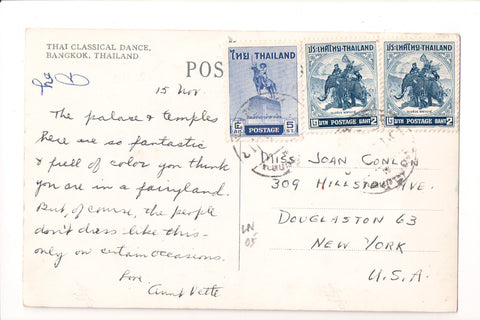 THAI CLASSICAL DANCE,
BANGKOK, THAILAND
POS
15 Nov.
The palace & temples
here are so fantastic
& full of color you think
you are in a fairyland.
But, of course, the people
don't dress like this -
only on certain occasions.
Love,
Aunt Vette
ไทย THAILAND
POSTAGE
5
ประเทศไทย-THAILAND
๒ บาท POSTAGE BAHT 2
ประเทศไทย-THAILAND
๒ บาท POSTAGE BAHT 2
MISS JOAN CONL
309 HILLS AVE.
DOUGLASTON 63
NEW YORK
U.S.A.